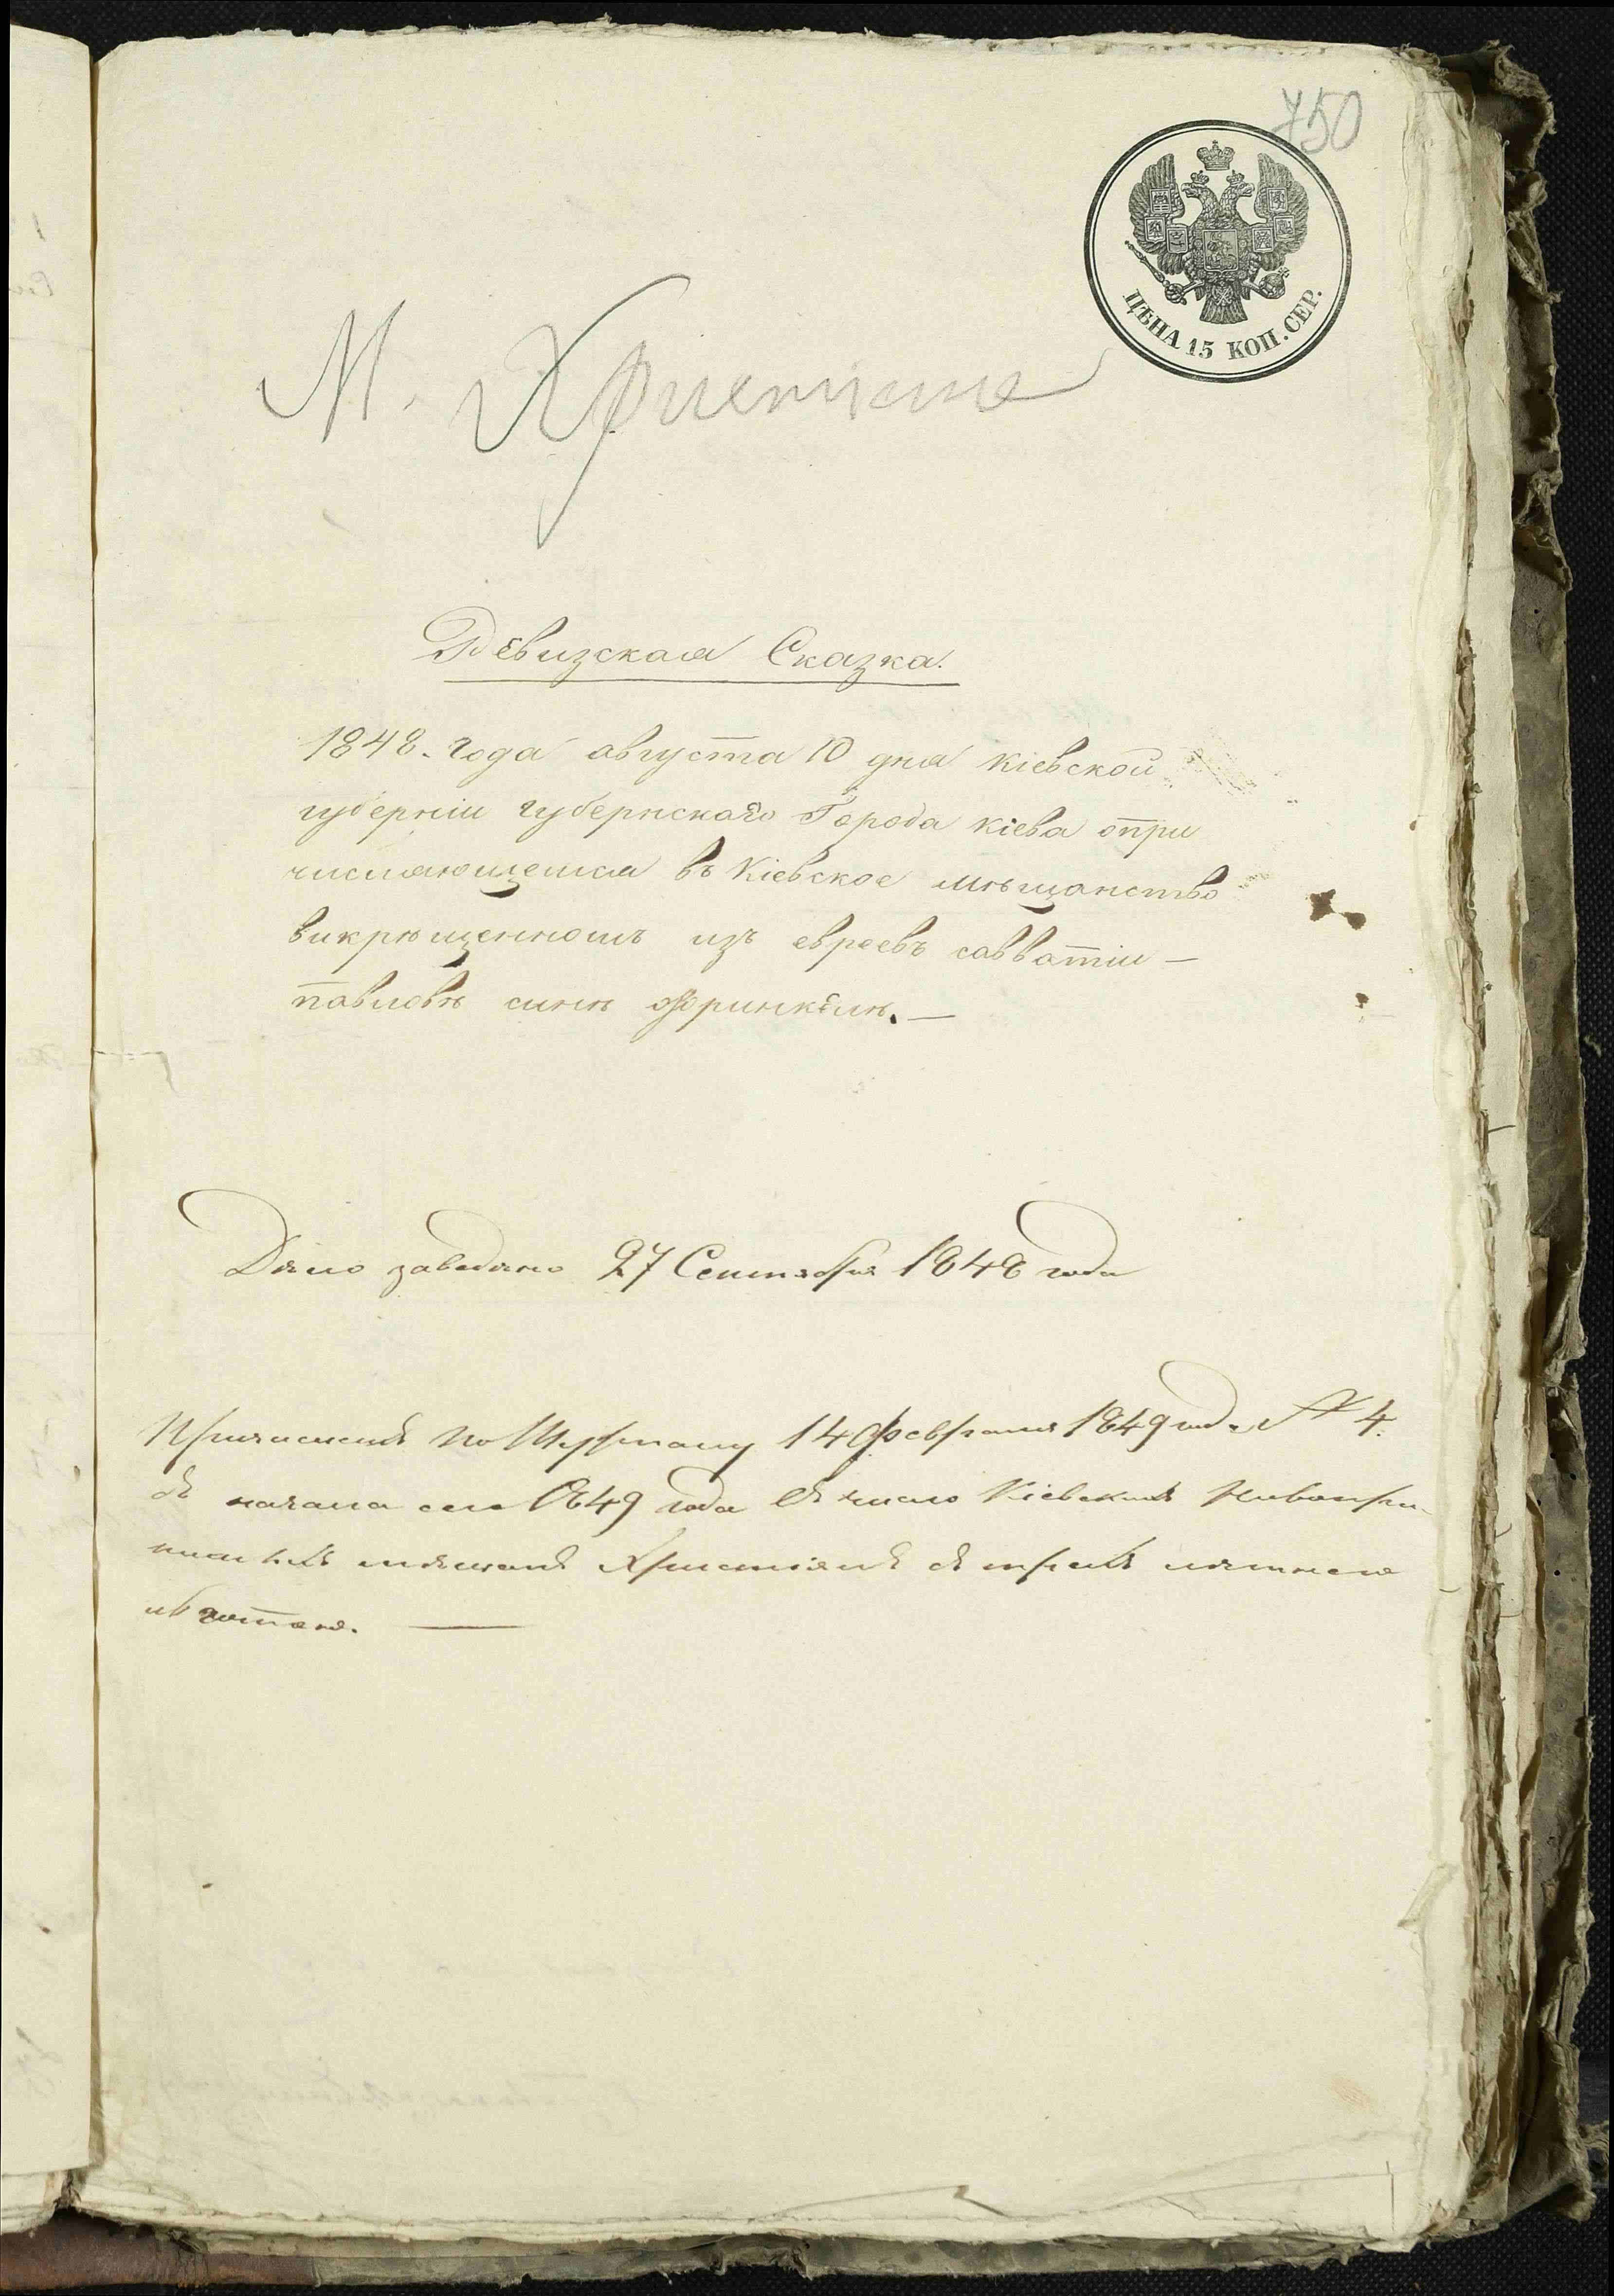 750
ЦѢНА 15 КОП. СЕР.
М. Христіане
Ревизская Сказка.
1848. года августа 10 дня Кіевской
губерніи губернскаго Города Кіева опри
числяющемся въ Кіевское мѣщанство
викрѣщенномъ изъ евреевъ савватіи —
павловѣ синѣ Френкелѣ. —
Дѣло заведено 27 Сентября 1848 года
Причисленъ по Журналу 14 Февраля 1849 года № 4.
съ начала сего 1849 года въ число Кіевскихъ Новопри-
мѣщанъ Христіанъ съ трехъ лѣтнею
льготою. —